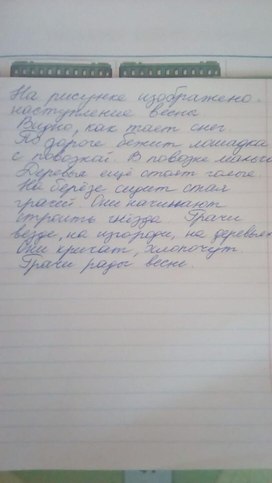 На рисунке изображено
наступление весны
Видно, как тает снег
По дороге бежит лошадка
с повозкой. В повозке много
Деревья ещё стоят голые.
На берёзе сидит стая
грачей. Они начинают
строить гнёзда. Грачи
везде, на изгороди, на деревьях
Они кричат, хлопочут
Грачи рады весне.